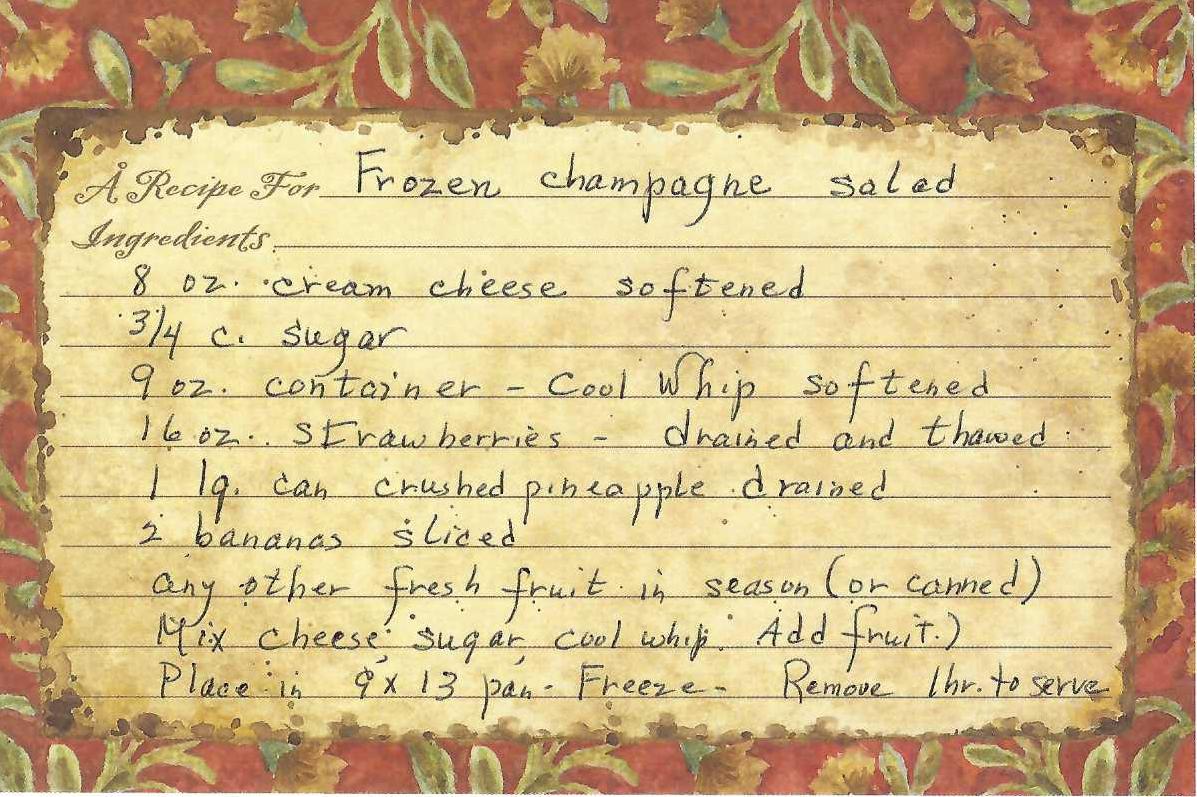 A Recipe For Frozen champagne salad
Ingredients
8 oz. cream cheese softened
3/4 c. sugar
9 oz. container - Cool Whip softened
16 oz. strawberries - drained and thawed
1 lg. can crushed pineapple drained
2 bananas sliced
any other fresh fruit in season (or canned)
Mix cheese, sugar, cool whip. Add fruit.)
Place in 9 x 13 pan - Freeze - Remove 1hr. to serve